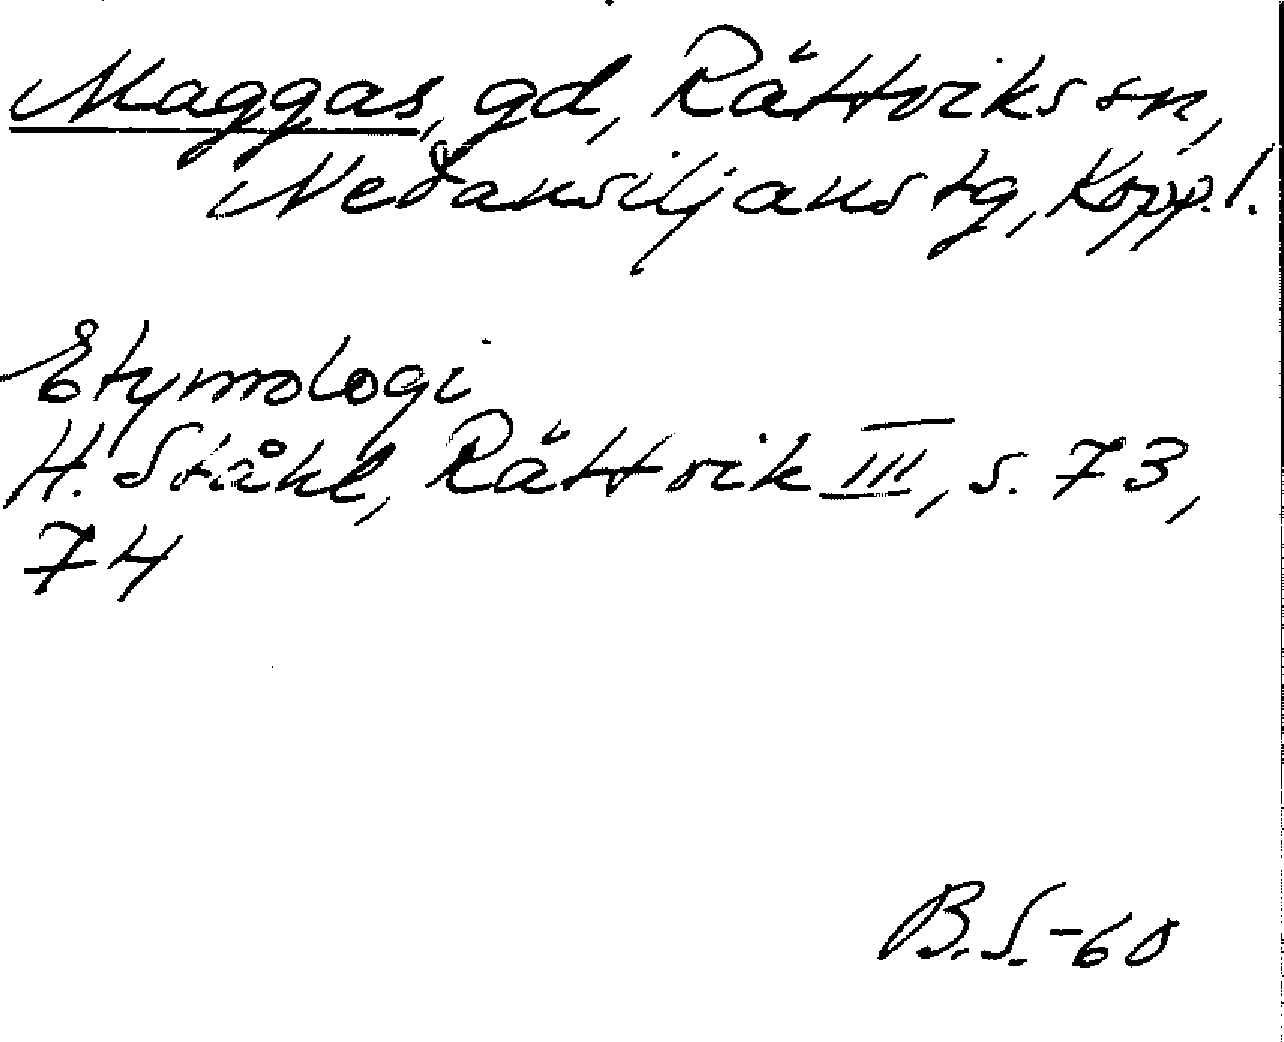 Maggas, gd, Rättviks sn,
Nedansiljans tg, Kopp.l.
Etymologi
H. Ståhl, Rättvik III, s. 73,
74
B.S.-60